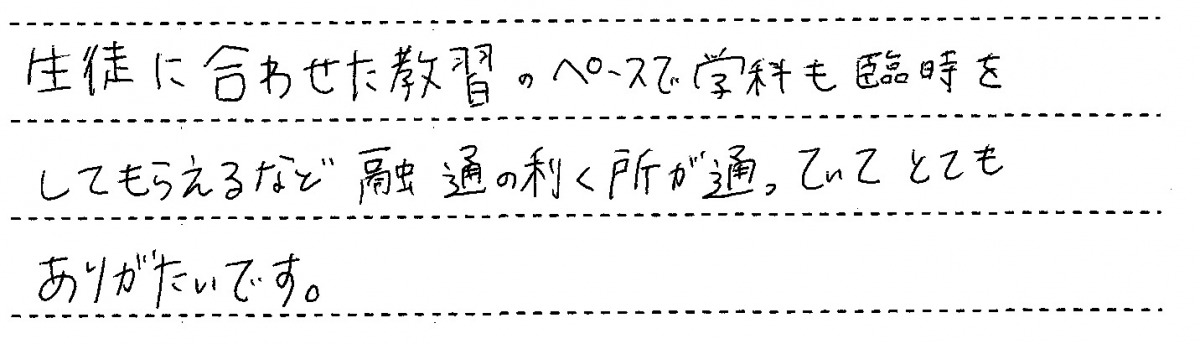 生徒に合わせた教習のペースで学科も臨時を
してもらえるなど融通の利く所が通っていてとても
ありがたいです。